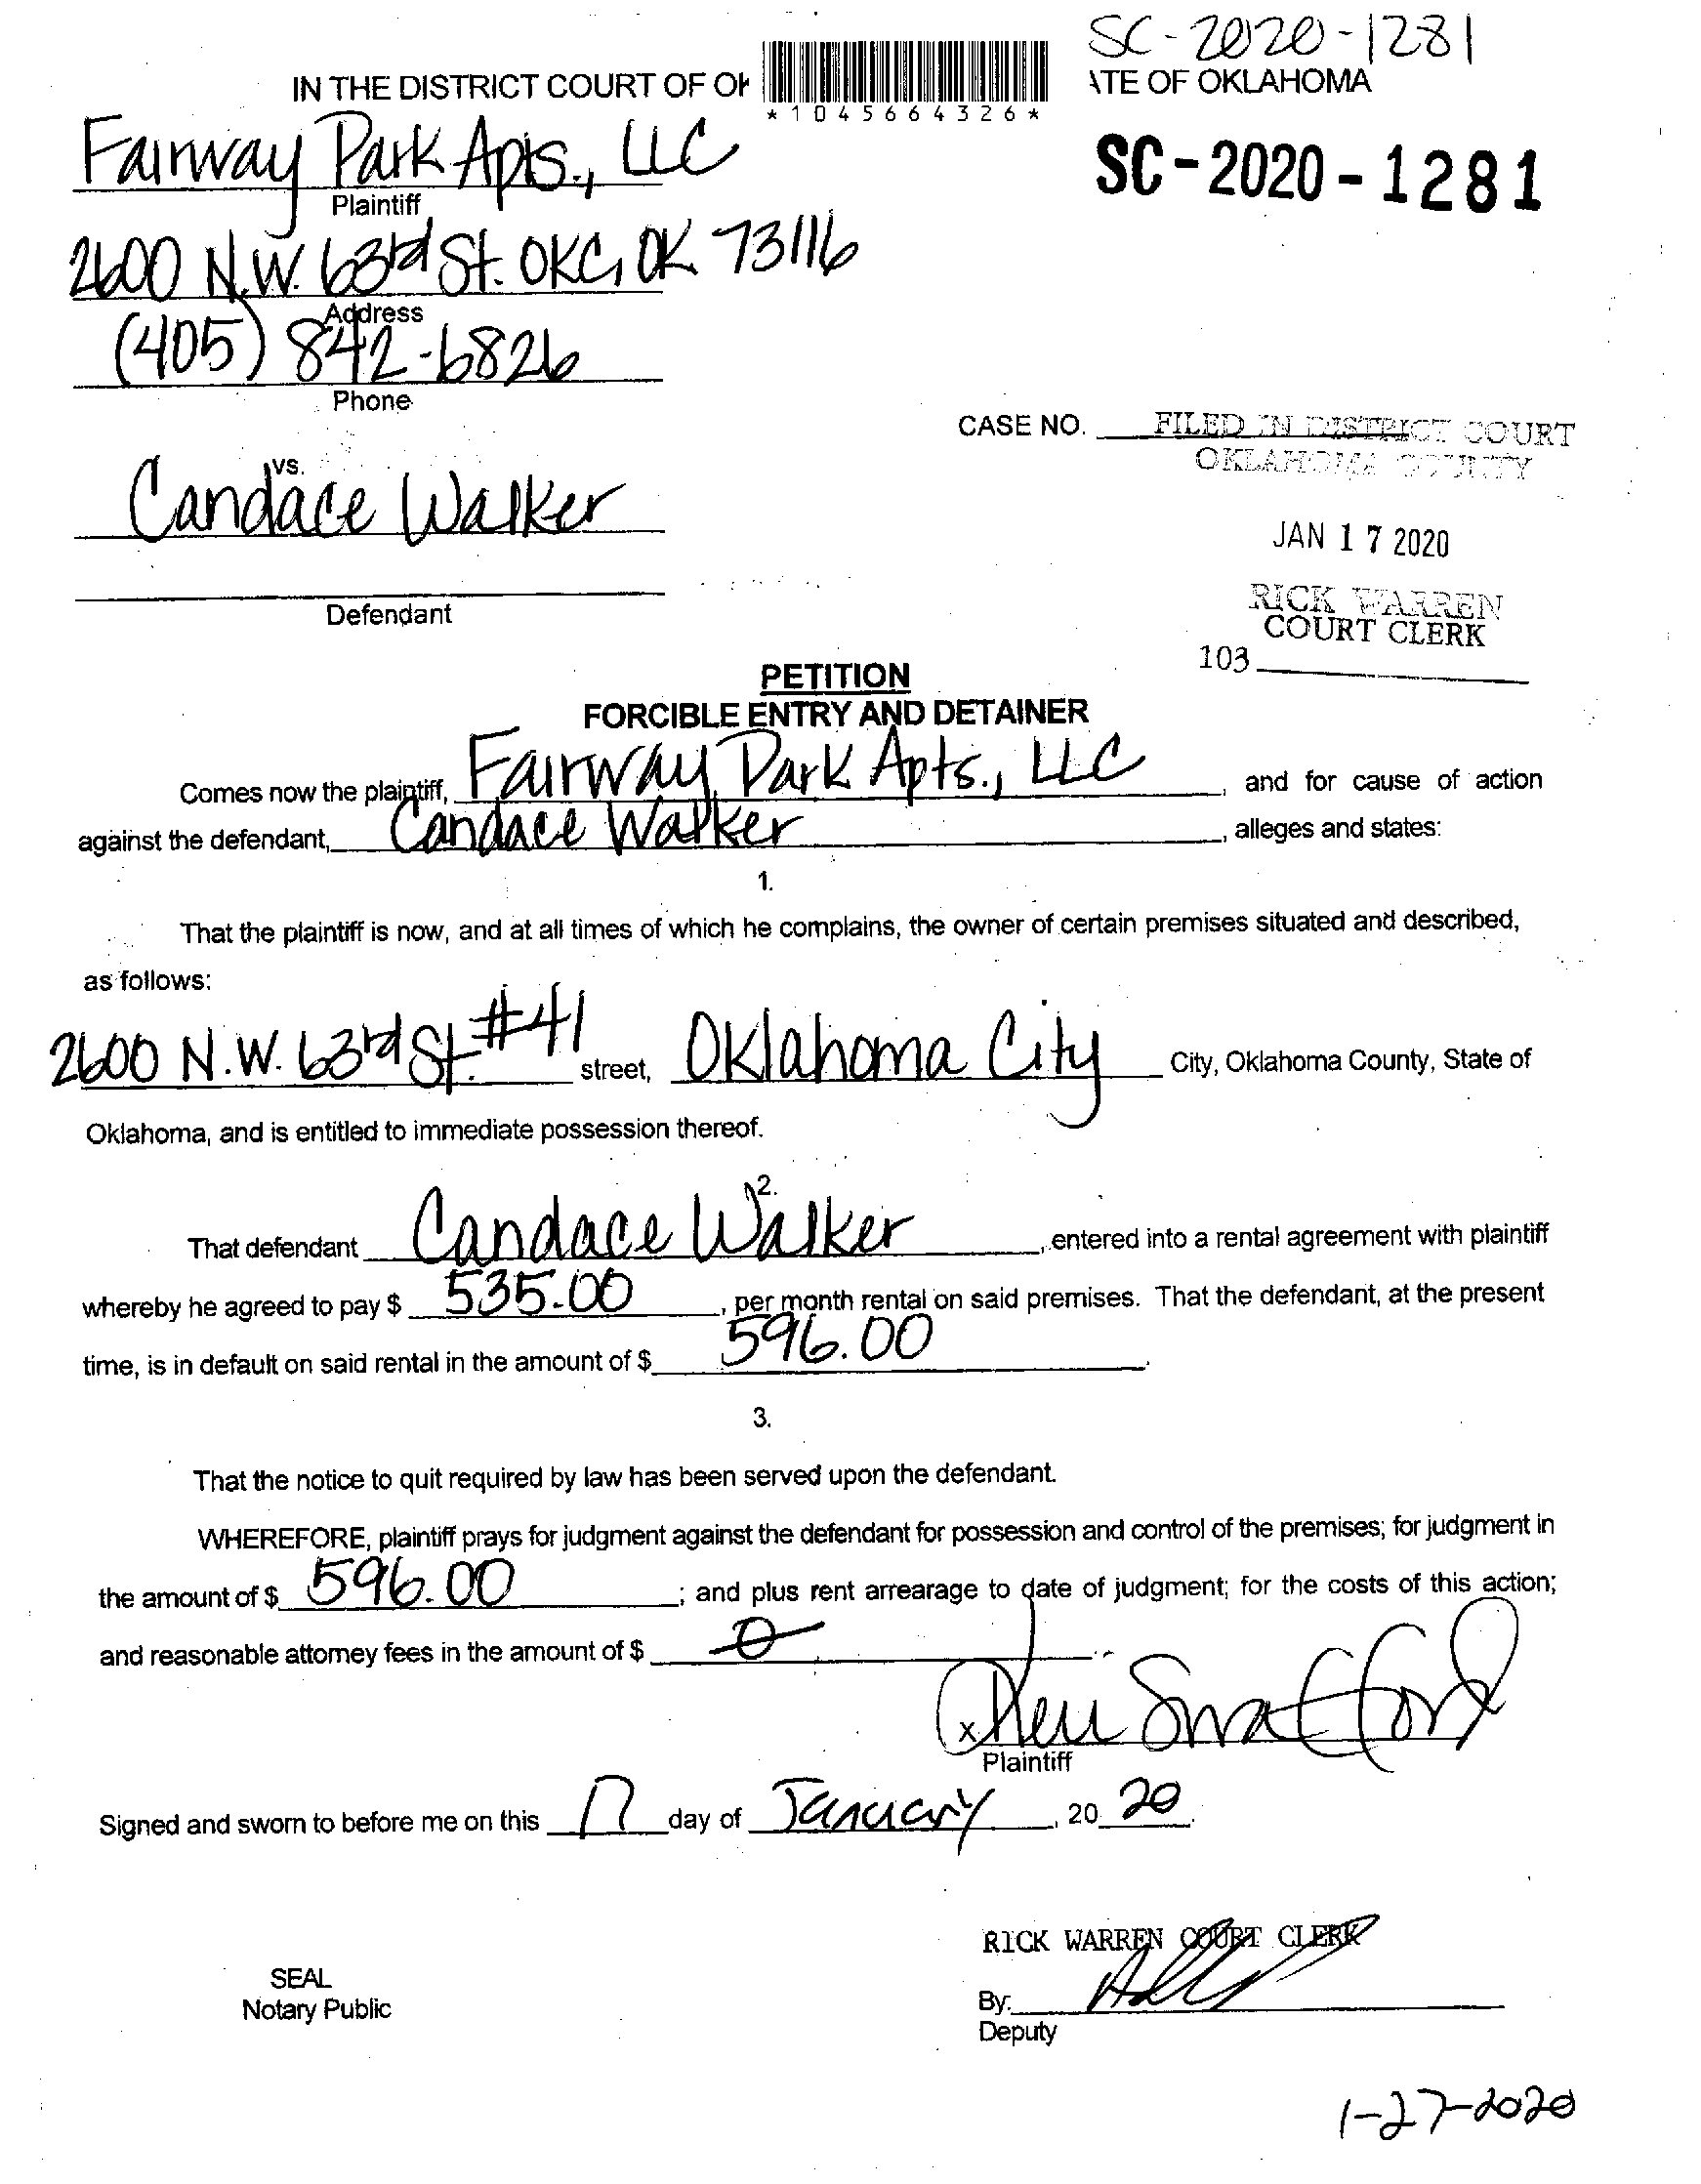 SC-2020-1281
IN THE DISTRICT COURT OF OK
ATE OF OKLAHOMA
*1045664326*
Fairway Park Apts., LLC
SC-2020-1281
Plaintiff
2600 N.W. 63rd St. OKC, OK 73116
Address
(405) 842-6826
Phone
CASE NO.
FILED IN DISTRICT COURT
OKLAHOMA COUNTY
vs.
Candace Walker
JAN 17 2020
RICK WARREN
COURT CLERK
Defendant
103
PETITION
FORCIBLE ENTRY AND DETAINER
Comes now the plaintiff, Fairway Park Apts., LLC, and for cause of action
against the defendant, Candace Walker, alleges and states:
1.
That the plaintiff is now, and at all times of which he complains, the owner of certain premises situated and described,
as follows:
2600 N.W. 63rd St. #41 street, Oklahoma City City, Oklahoma County, State of
Oklahoma, and is entitled to immediate possession thereof.
2.
That defendant Candace Walker, entered into a rental agreement with plaintiff
whereby he agreed to pay $ 535.00, per month rental on said premises. That the defendant, at the present
time, is in default on said rental in the amount of $ 596.00.
3.
That the notice to quit required by law has been served upon the defendant.
WHEREFORE, plaintiff prays for judgment against the defendant for possession and control of the premises; for judgment in
the amount of $ 596.00; and plus rent arrearage to date of judgment; for the costs of this action;
and reasonable attorney fees in the amount of $ 0.
x
Plaintiff
Signed and sworn to before me on this 17 day of January, 20 20.
RICK WARREN COURT CLERK
SEAL
Notary Public
By:
Deputy
1-27-2020